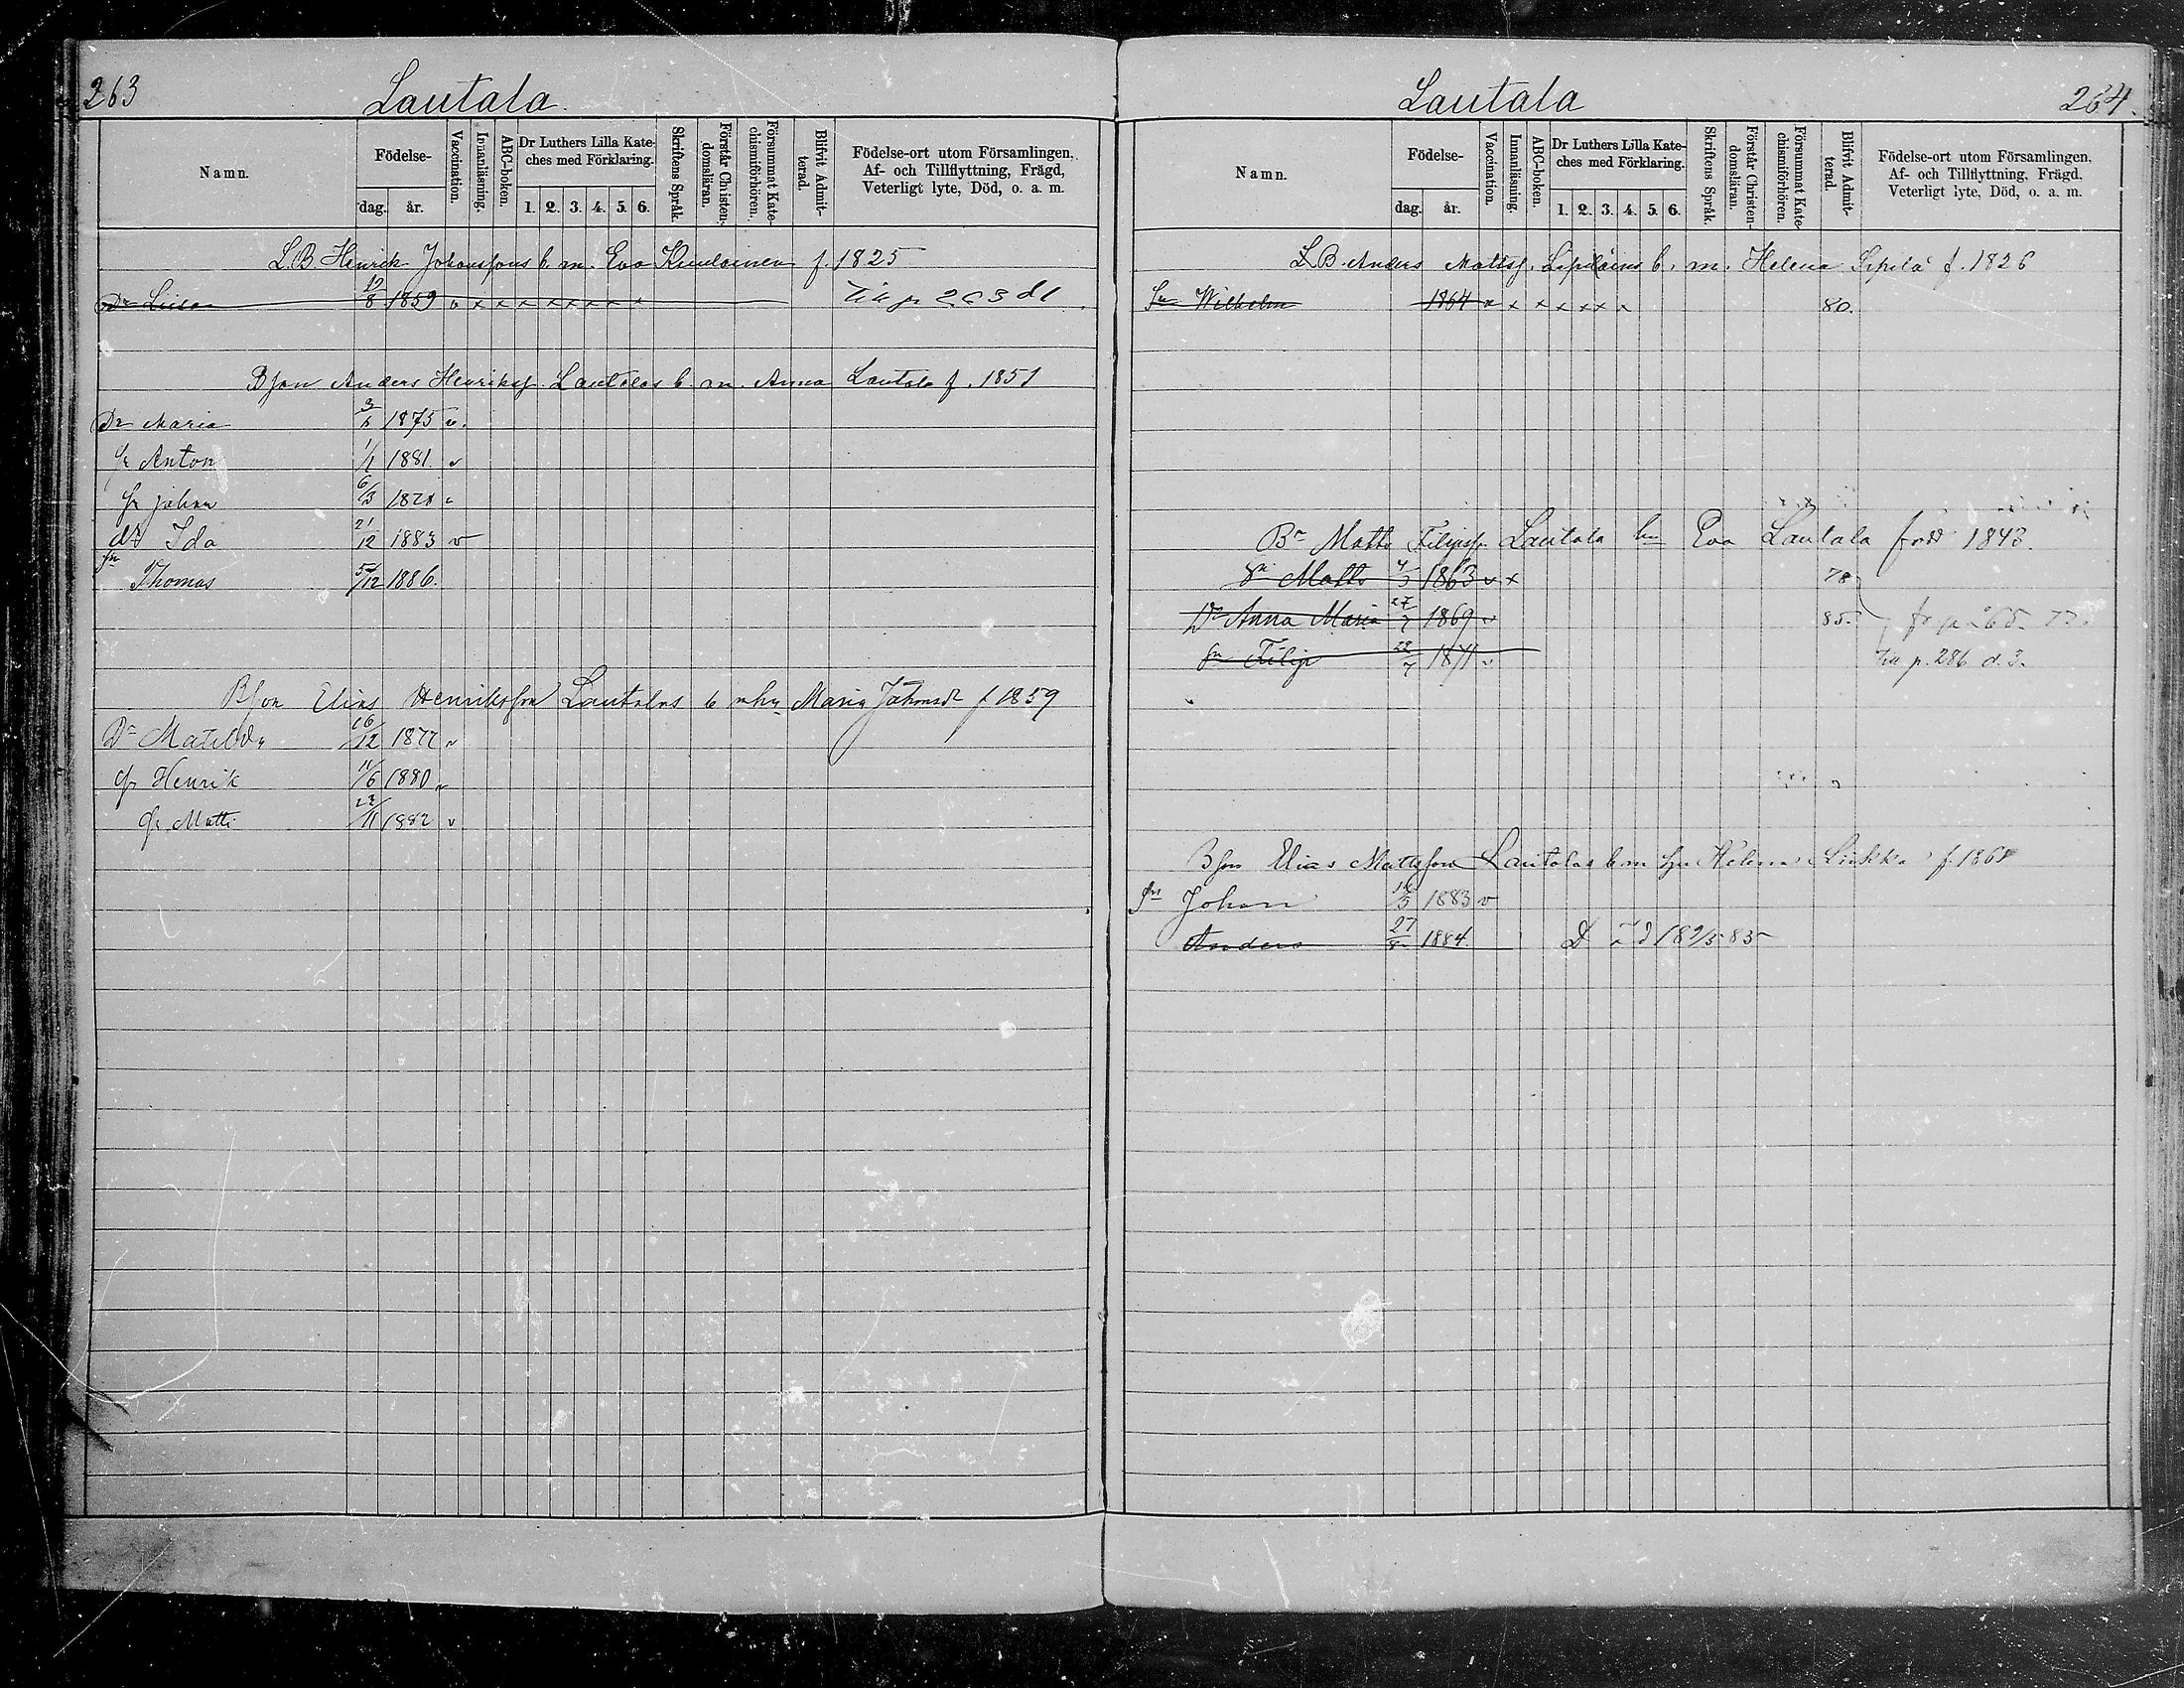 263
Lautala.
Namn.
Födelse-
dag.
år.
Vaccination.
Innanläsning.
ABC-boken.
Dr Luthers Lilla Kate-
ches med Förklaring.
1. 2. 3. 4. 5. 6.
Skriftens Språk.
Förstår Christen-
domsläran.
Försummat Kate-
chismiförhören.
Blifvit Admit-
terad.
Födelse-ort utom Församlingen,
Af- och Tillflyttning, Frägd,
Veterligt lyte, Död, o. a. m.
L.B. Henrik Johanssons b. m. Eva f. 1825
Dr Liisa 8 1859 v x x x x x x x x
Bson Anders Henrikss. Lautalas b. m. Anna Lautala f. 1851
Dr Maria 1875 v.
Sn Anton 1/1 1881 v
Sn Johan 6/3
dr Ida 21/12 1883 v
sn Thomas 1886.
Bson Elias Henriksson Lautalas b Maria f 1859
Dr Matilda 16/12 1877 v
Sn Henrik 11/6 1880 v
Sn Matti 1882 v
Lautala
264.
Namn.
Födelse-
dag.
år.
Vaccination.
Innanläsning.
ABC-boken.
Dr Luthers Lilla Kate-
ches med Förklaring.
1. 2. 3. 4. 5. 6.
Skriftens Språk.
Förstår Christen-
domsläran.
Försummat Kate-
chismiförhören.
Blifvit Admit-
terad.
Födelse-ort utom Församlingen,
Af- och Tillflyttning, Frägd,
Veterligt lyte, Död, o. a. m.
L.B. Anders Mattss. b. m. Helena Sipilä f. 1826
Sn Wilhelm 1864 v x x x x x x 80.
Br Matts Filipss. Lautala Eva Lautala född 1843.
Sn Matts 1863 v x 78
Dr Anna Maria 27/7 1869 v 85
Sn Filip 22/7 1871 v p. 286 d. 3.
Bson Elias Mattsson Lautalas b m Helena f. 1861
Sn Johan 1883 v
Anders 27 1884 D